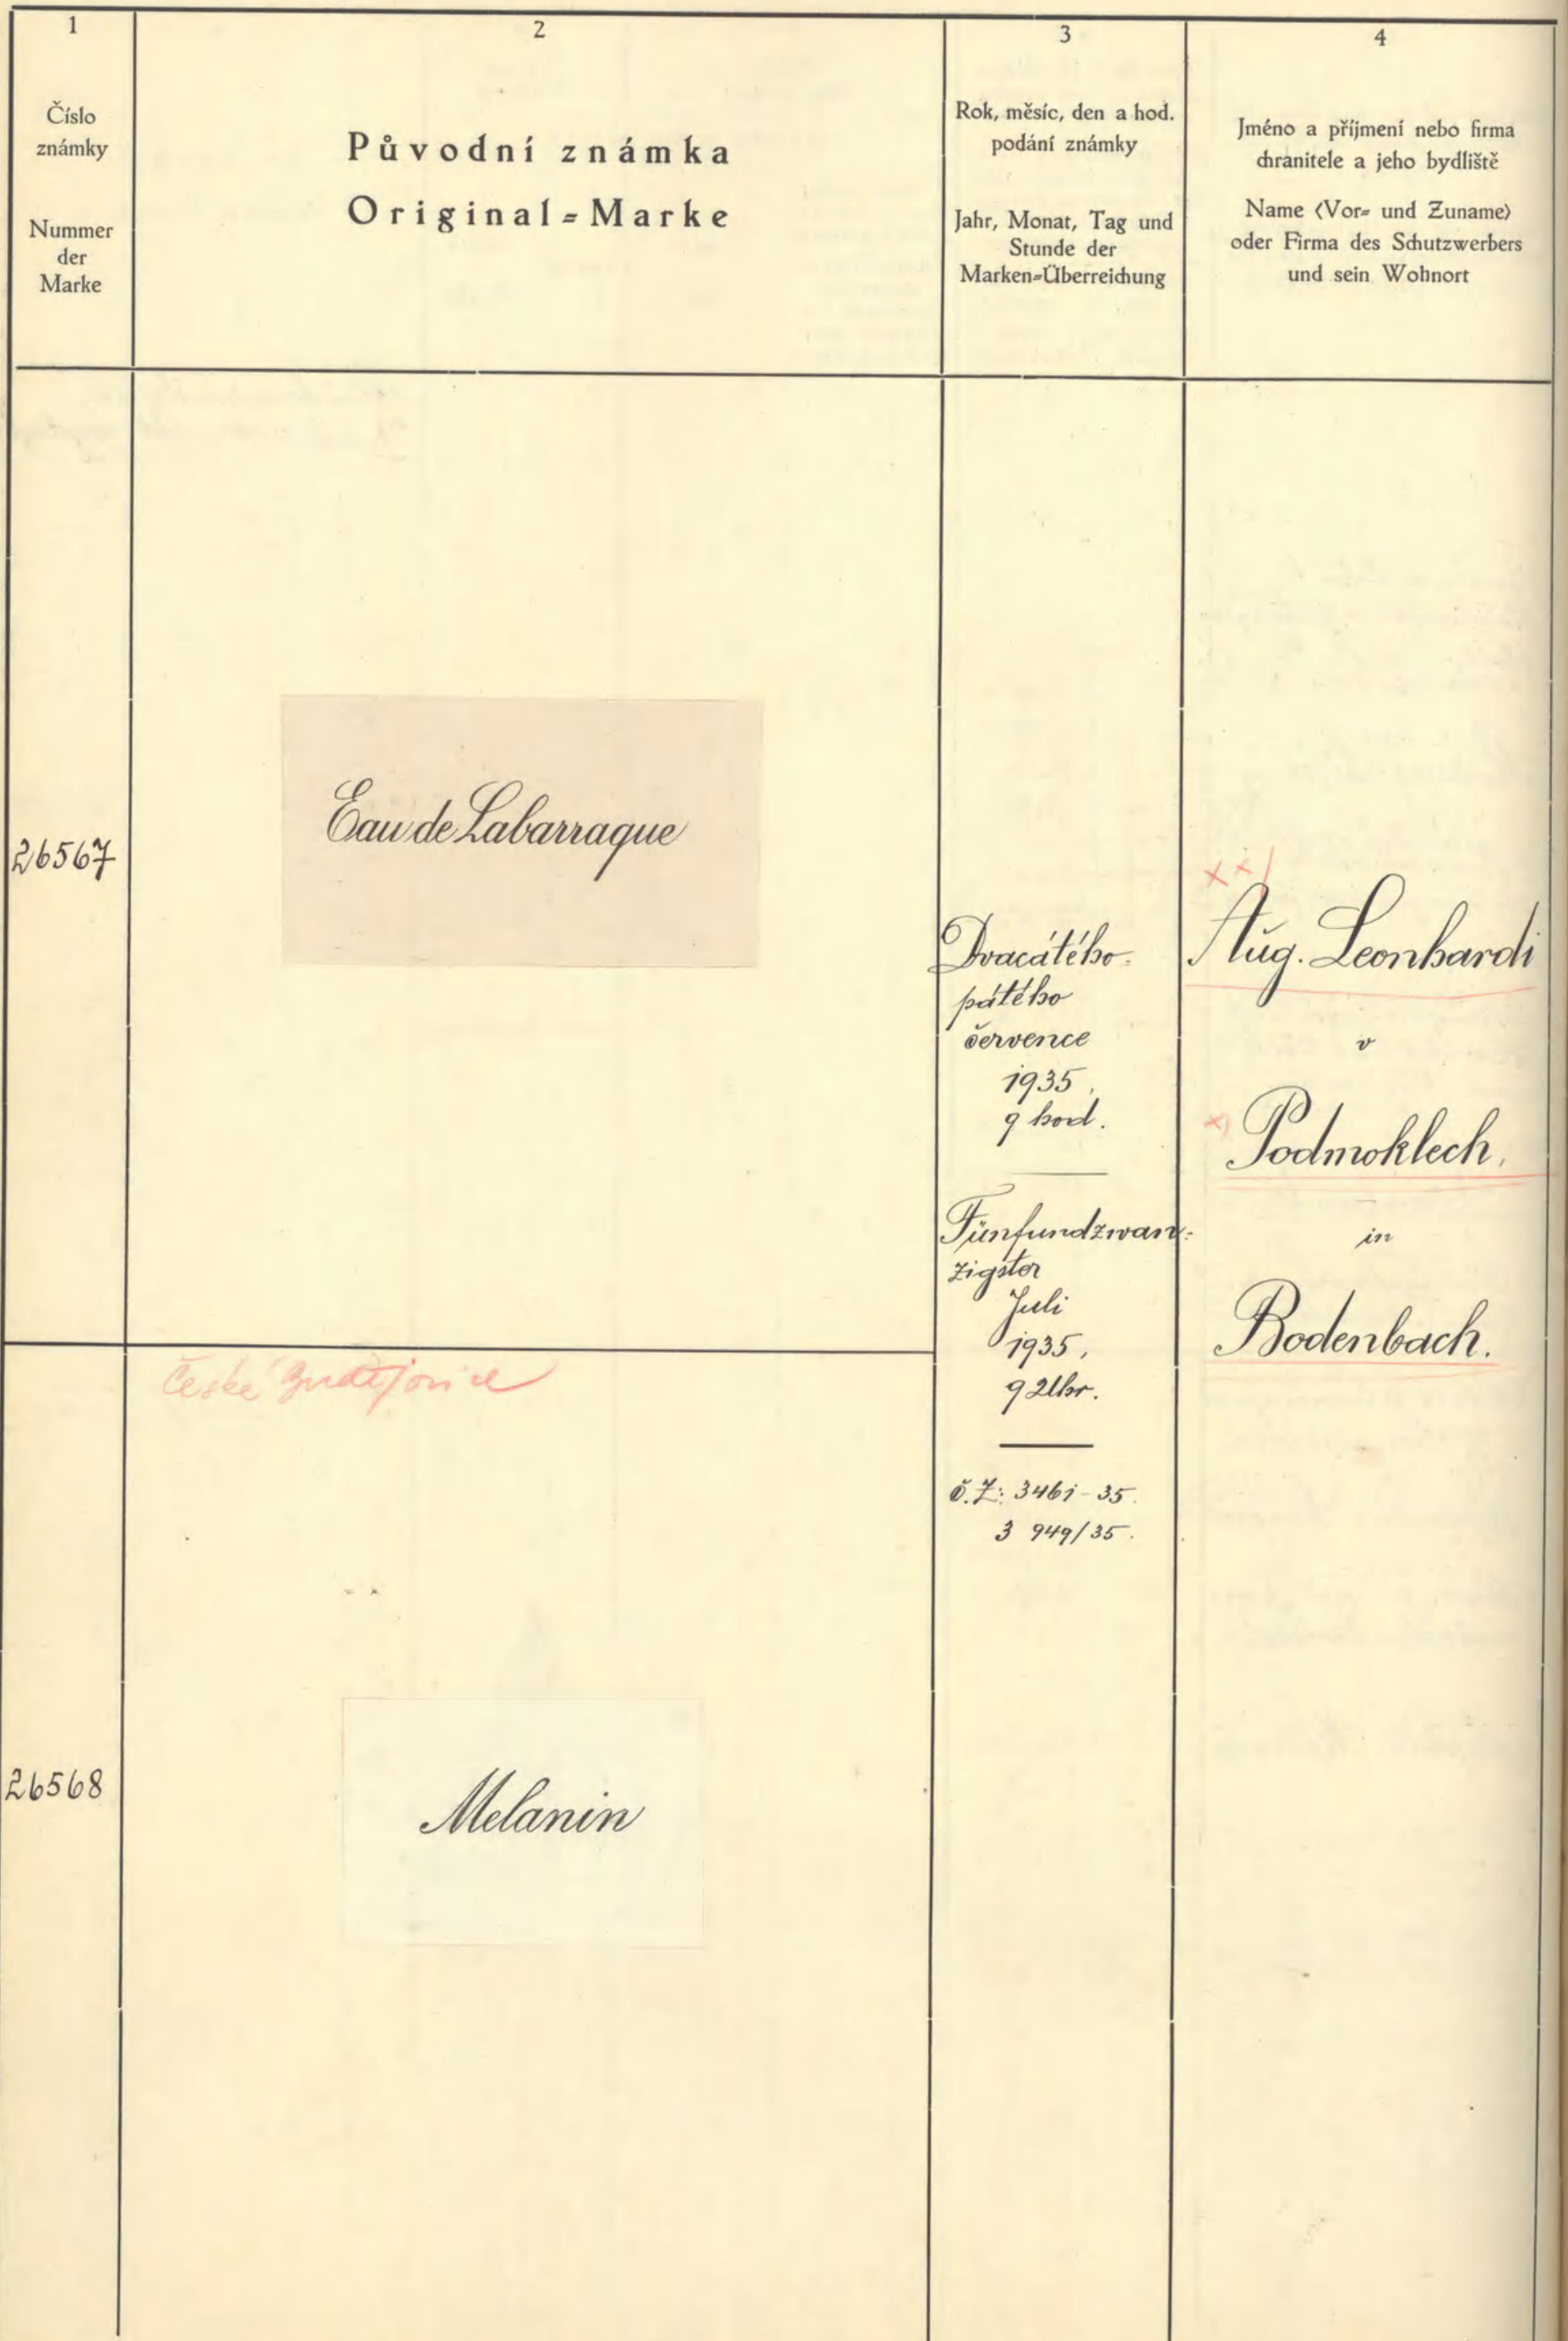 1
Číslo
známky
Nummer
der
Marke
2
Původní známka
Original=Marke
3
Rok, měsíc, den a hod.
podání známky
Jahr, Monat, Tag und
Stunde der
Marken=Überreichung
4
Jméno a příjmení nebo firma
chranitele a jeho bydliště
Name (Vor= und Zuname)
oder Firma des Schutzwerbers
und sein Wohnort
26567
Eau de Labarraque
Dvacátého
pátého
července
1935.
9 hod.
Fünfundzwan=
zigster
Juli
1935.
9 Uhr.
č.Z: 3461-35.
3 949/35.
xx)
Aug. Leonhardi
v
x)
Podmoklech.
in
Bodenbach.
České Budějovice
26568
Melanin